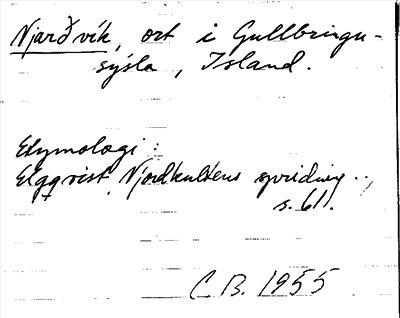 Njarðvík, ort i Gullbringu-
sýsla, Island.
Etymologi:
Elgqvist, Njordkultens spridning..,
s. 61.
C.B. 1955